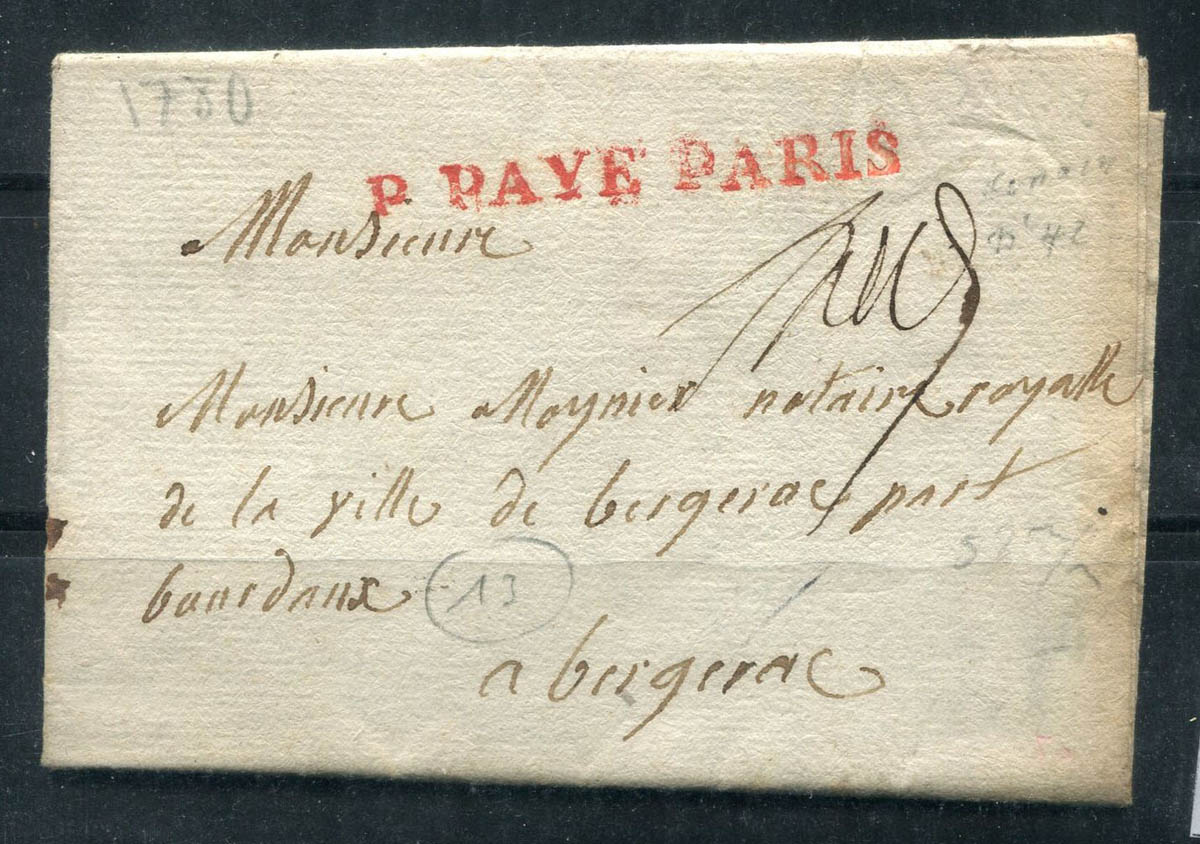 1780
P. PAYÉ PARIS
Monsieure
Monsieure Moynier notaire royalle
de la ville de bergerac part
bourdaux
13
a bergerac